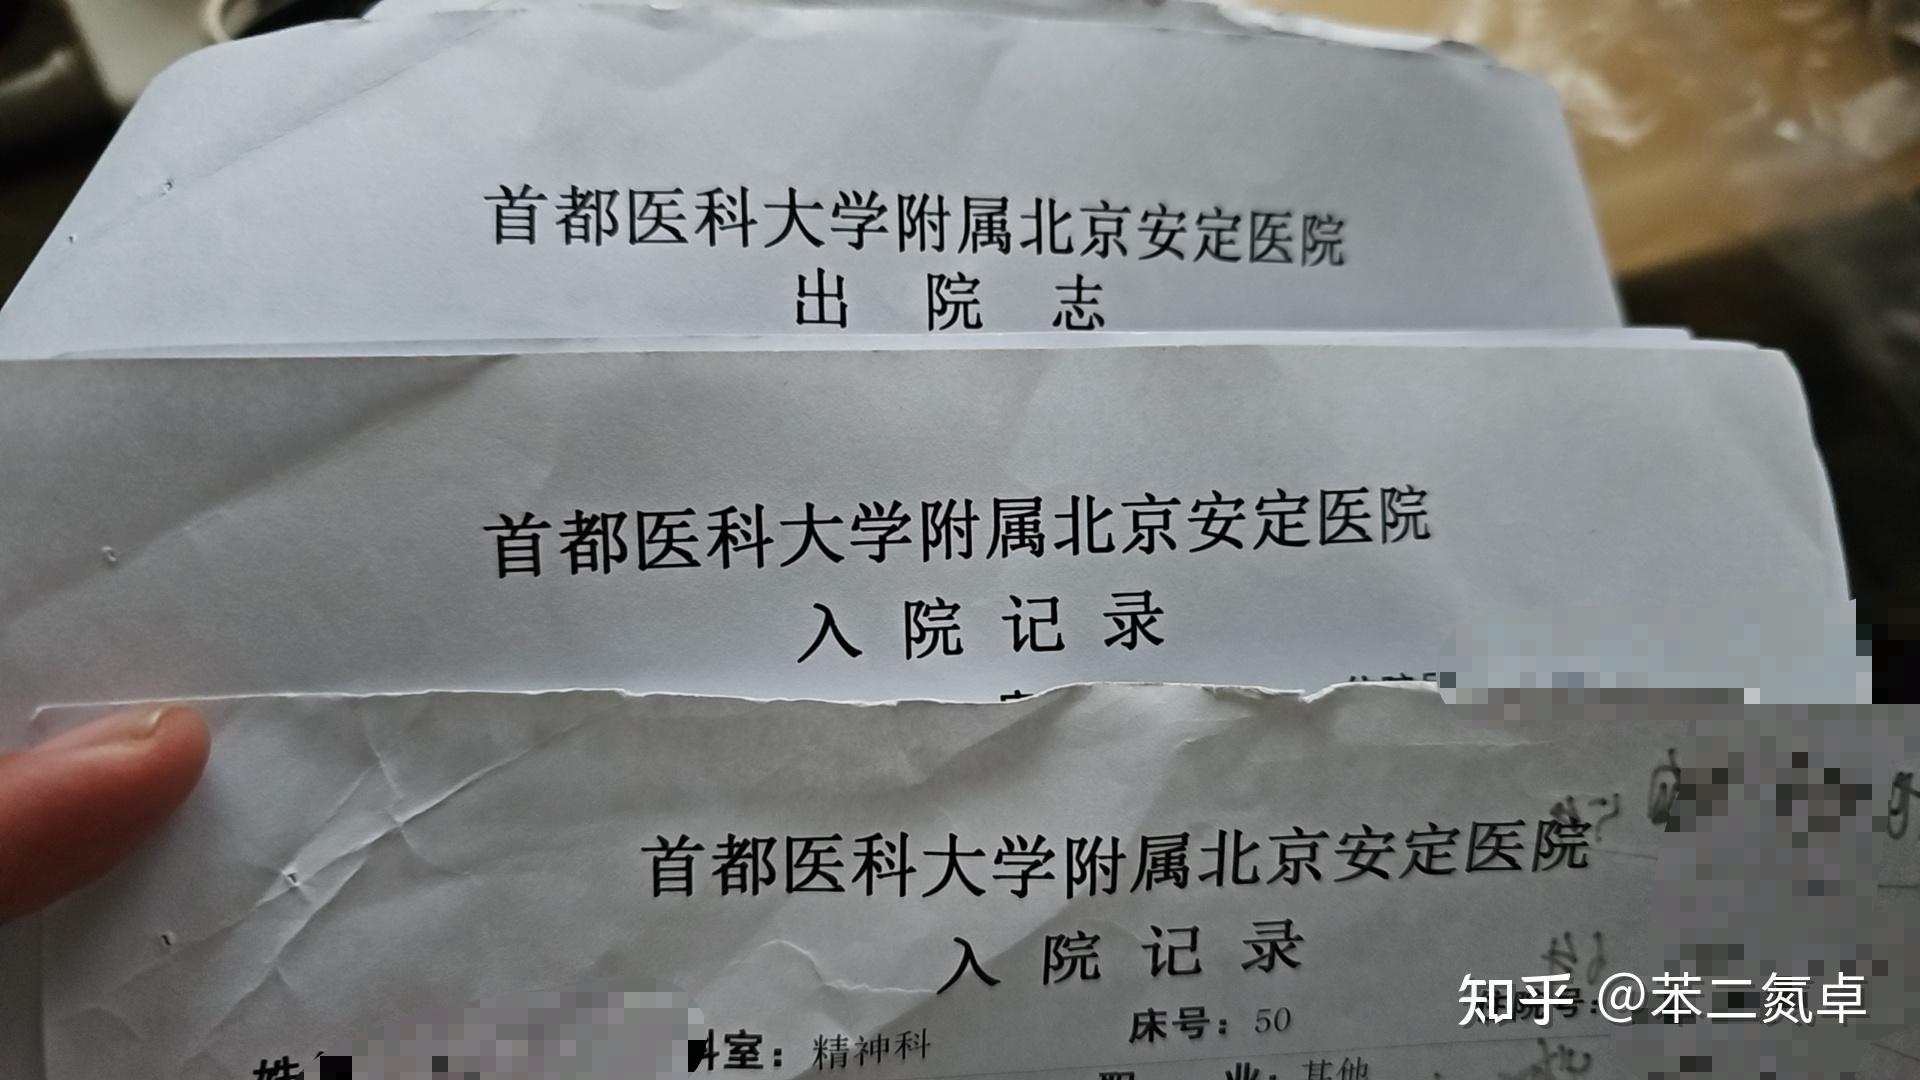 首都医科大学附属北京安定医院
出 院 志
首都医科大学附属北京安定医院
入 院 记 录
首都医科大学附属北京安定医院
入 院 记 录
床号：50
科室：精神科
姓
业：其他
知乎 @苯二氮卓